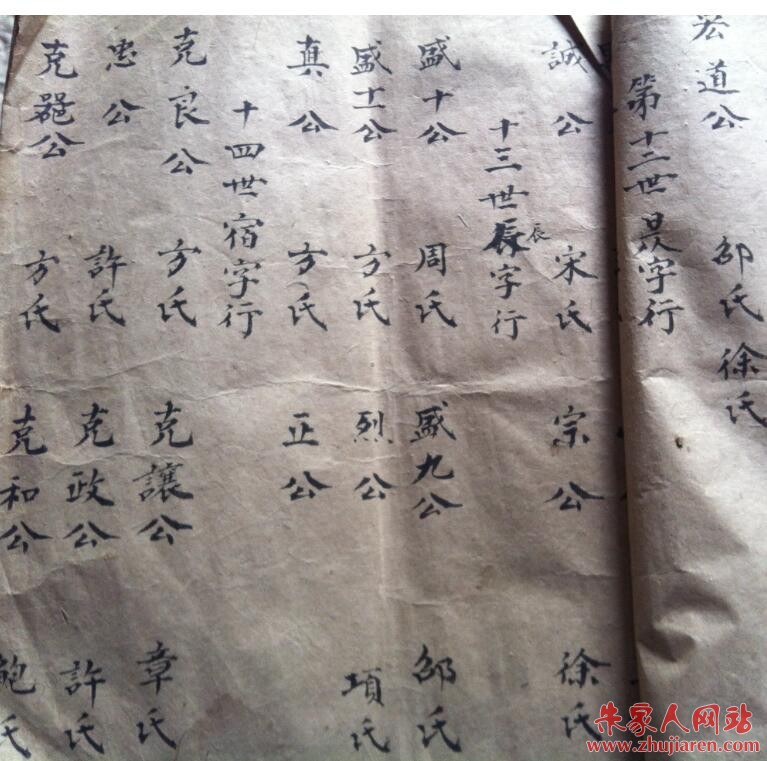 宏道公 邵氏徐氏
第十二世昃字行
誠公 宋氏 宗公 徐氏
十三世辰字行
辰
盛十公 周氏 盛九公 邵氏
盛十一公 方氏 烈公 項氏
真公 方氏 正公
十四世宿字行
克良公 方氏 克讓公 章氏
忠公 許氏 克政公 許氏
克器公 方氏 克和公 鮑氏
朱家人网站
www.zhujiaren.com